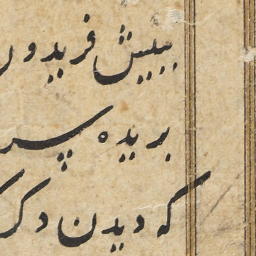 ببیش فریدون
بریده پسر
که دیدن دگر